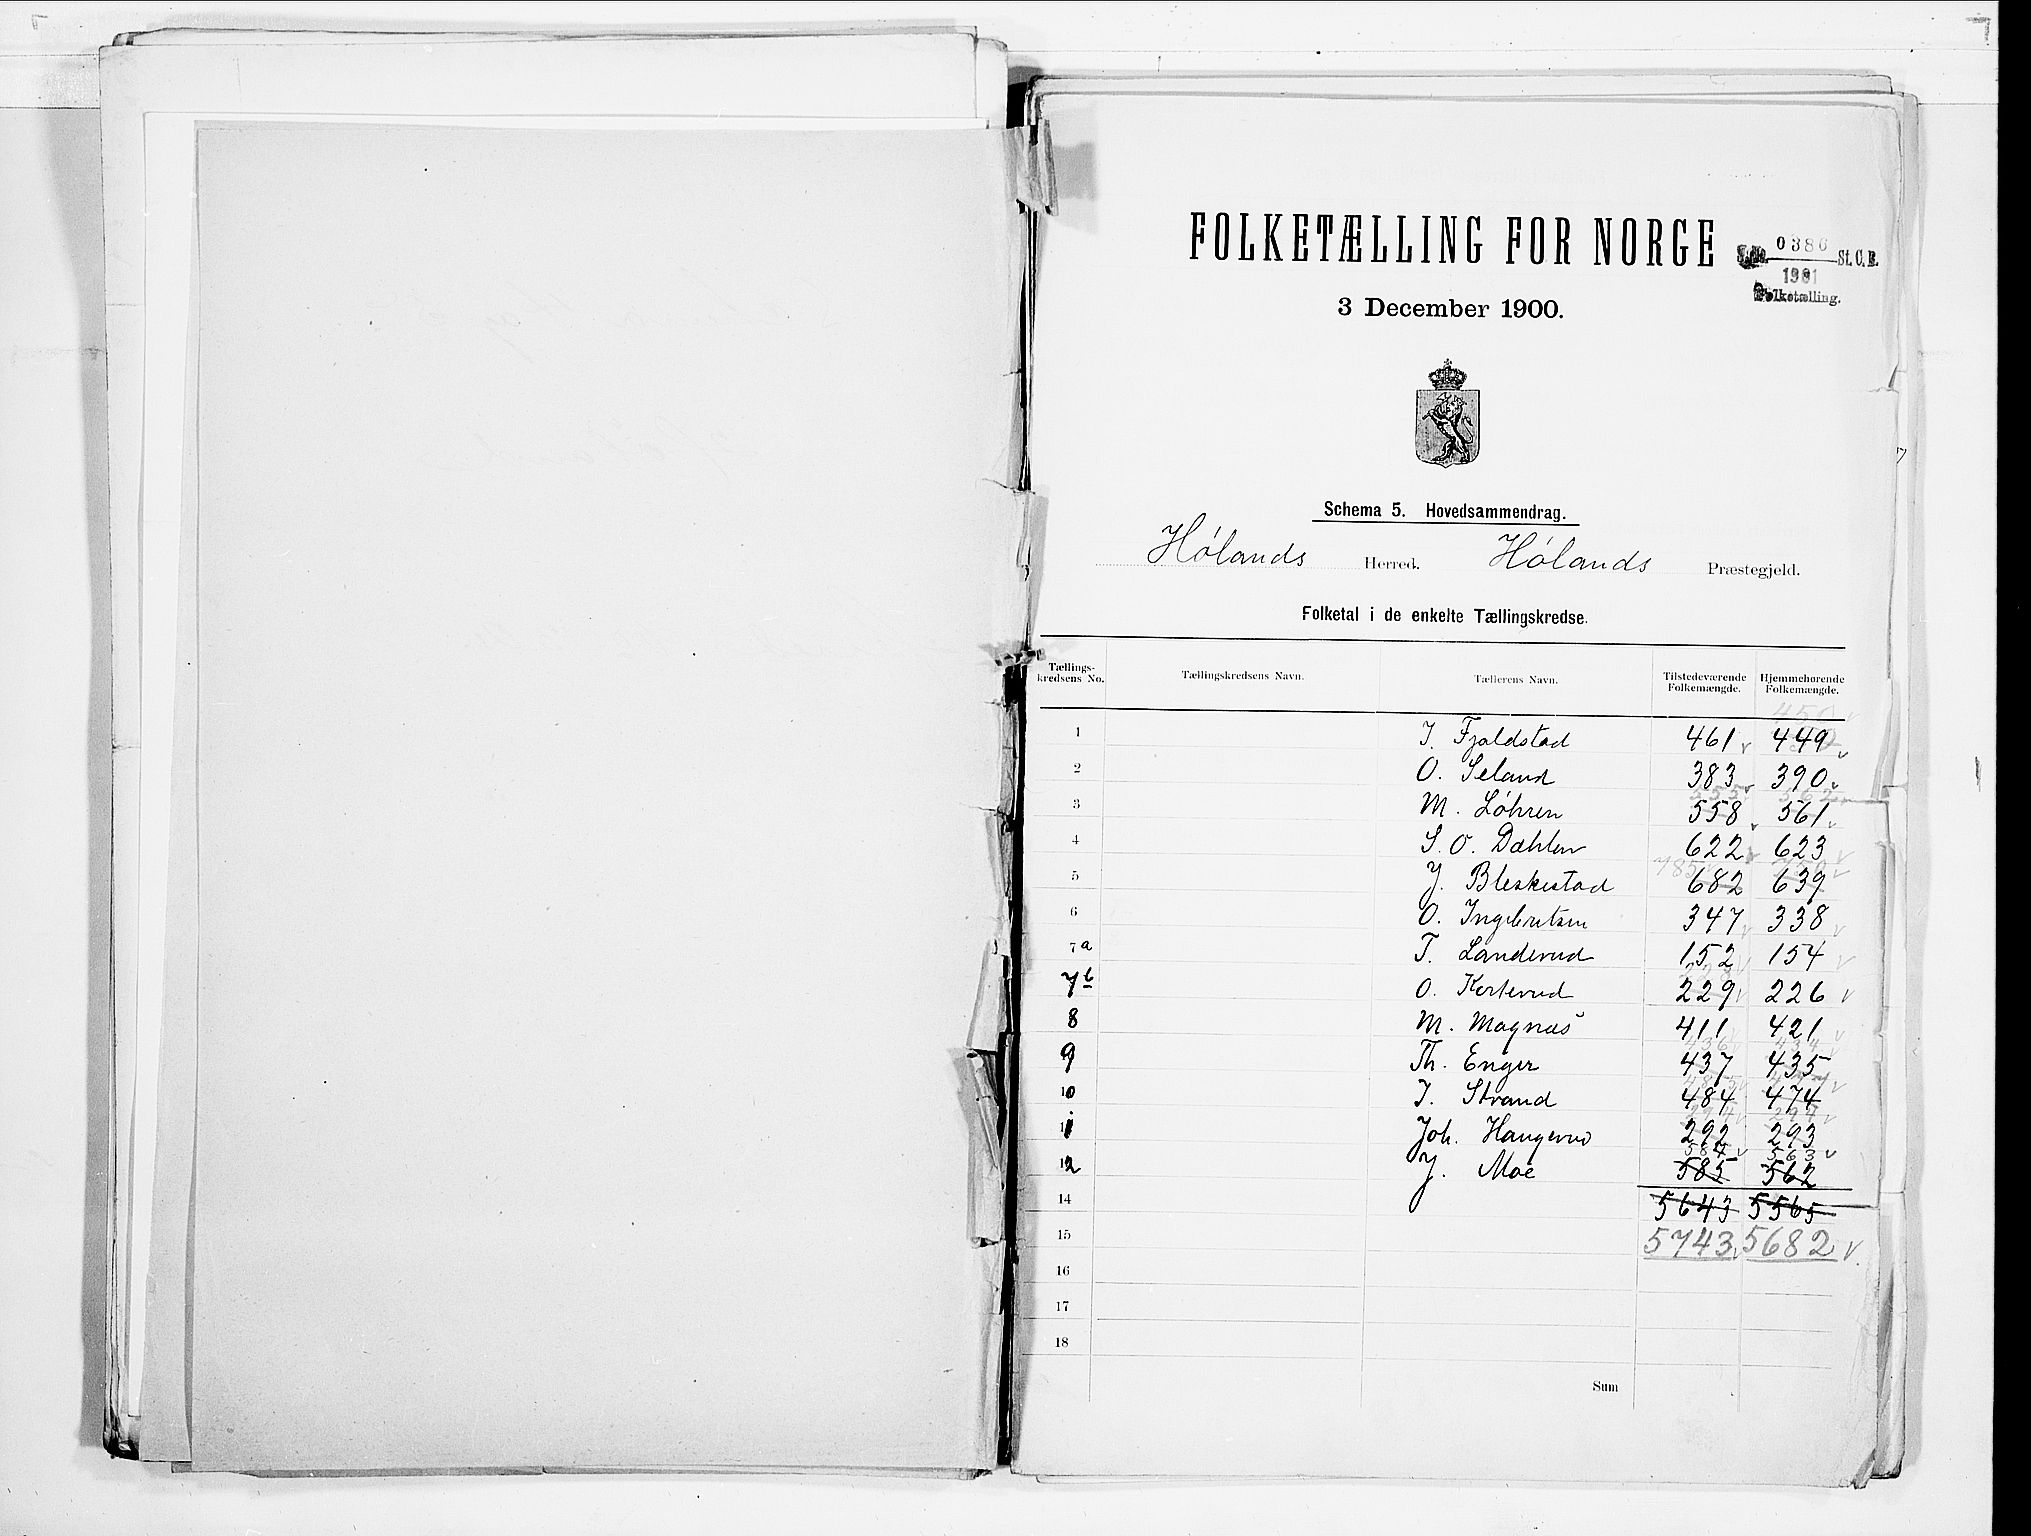 FOLKETÆLLING FOR NORGE
0386 St. C. B.
1901
Folketælling.
3 December 1900.
Schema 5. Hovedsammendrag.
Hølands Herred. Hølands Præstegjeld.
Folketal i de enkelte Tællingskredse.
Tællings-kredsens No. Tællingskredsens Navn. Tællerens Navn. Tilstedeværende Folkemængde. Hjemmehørende Folkemængde.
1 J. Fjeldstad 461 449
2 O. Seland 383 390
3 M. Løhren 558 561
4 S. O. Dæhlen 622 623
5 J. Bleskestad 682 639
6 O. Ingebretsen 347 338
7a T. Landerud 152 154
7b O. Korterud 229 226
8 M. Magnæs 411 421
9 Th. Enger 437 435
10 J. Strand 484 474
11 Joh. Haugerud 292 293
584 563
12 J. Moe 585 562
14 5643 5565
15 5743 5682
16
17
18
Sum